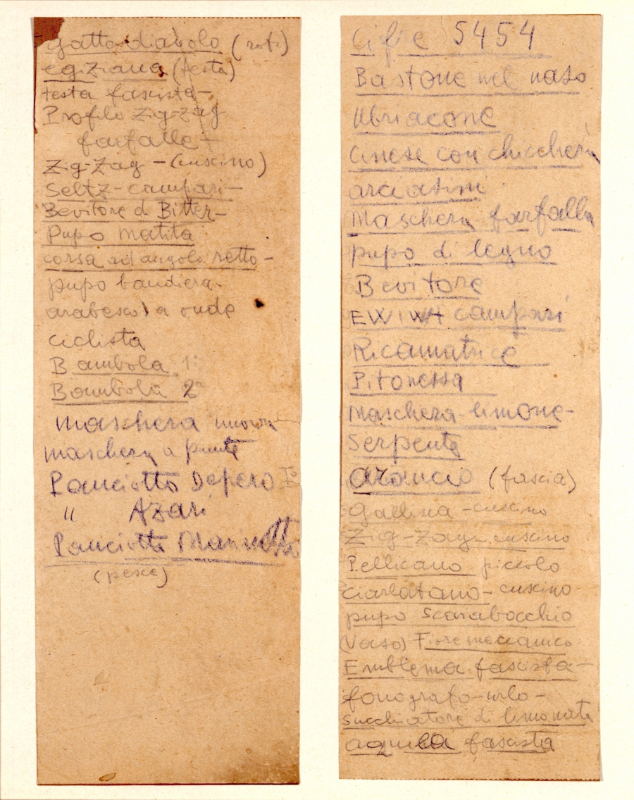 Gatto diavolo
egiziana (festa)
testa fascista-
Profilo Zig-zag
farfalle-
Zig-Zag-(cuscino)
Seltz-campari-
Bevitore d Bitter-
Pupo matita
corsa ad angolo retto-
pupo bandiera-
arabeschi a onde
ciclista
Bambola 1
Bambola 2
maschera
maschera a punte
Panciotto Depero
" Azari
Panciotto Marinetti
(pesce)
Cifre 5454
Bastone nel naso
Ubriacone
Cinese con chicchera
Maschera farfalla
pupo di legno
Bevitore
campari
Ricamatrice
Pitonessa
Maschera-limone-
Serpente
arancio (fascia)
Gallina-cuscino
Zig-Zag-cuscino
Pellicano piccolo
ciarlatano-cuscino
pupo scarabocchio
(Vaso) Fiore meccanico
Emblema fascista-
fonografo-urlo-
succhiatore di limonata
aquila fascista